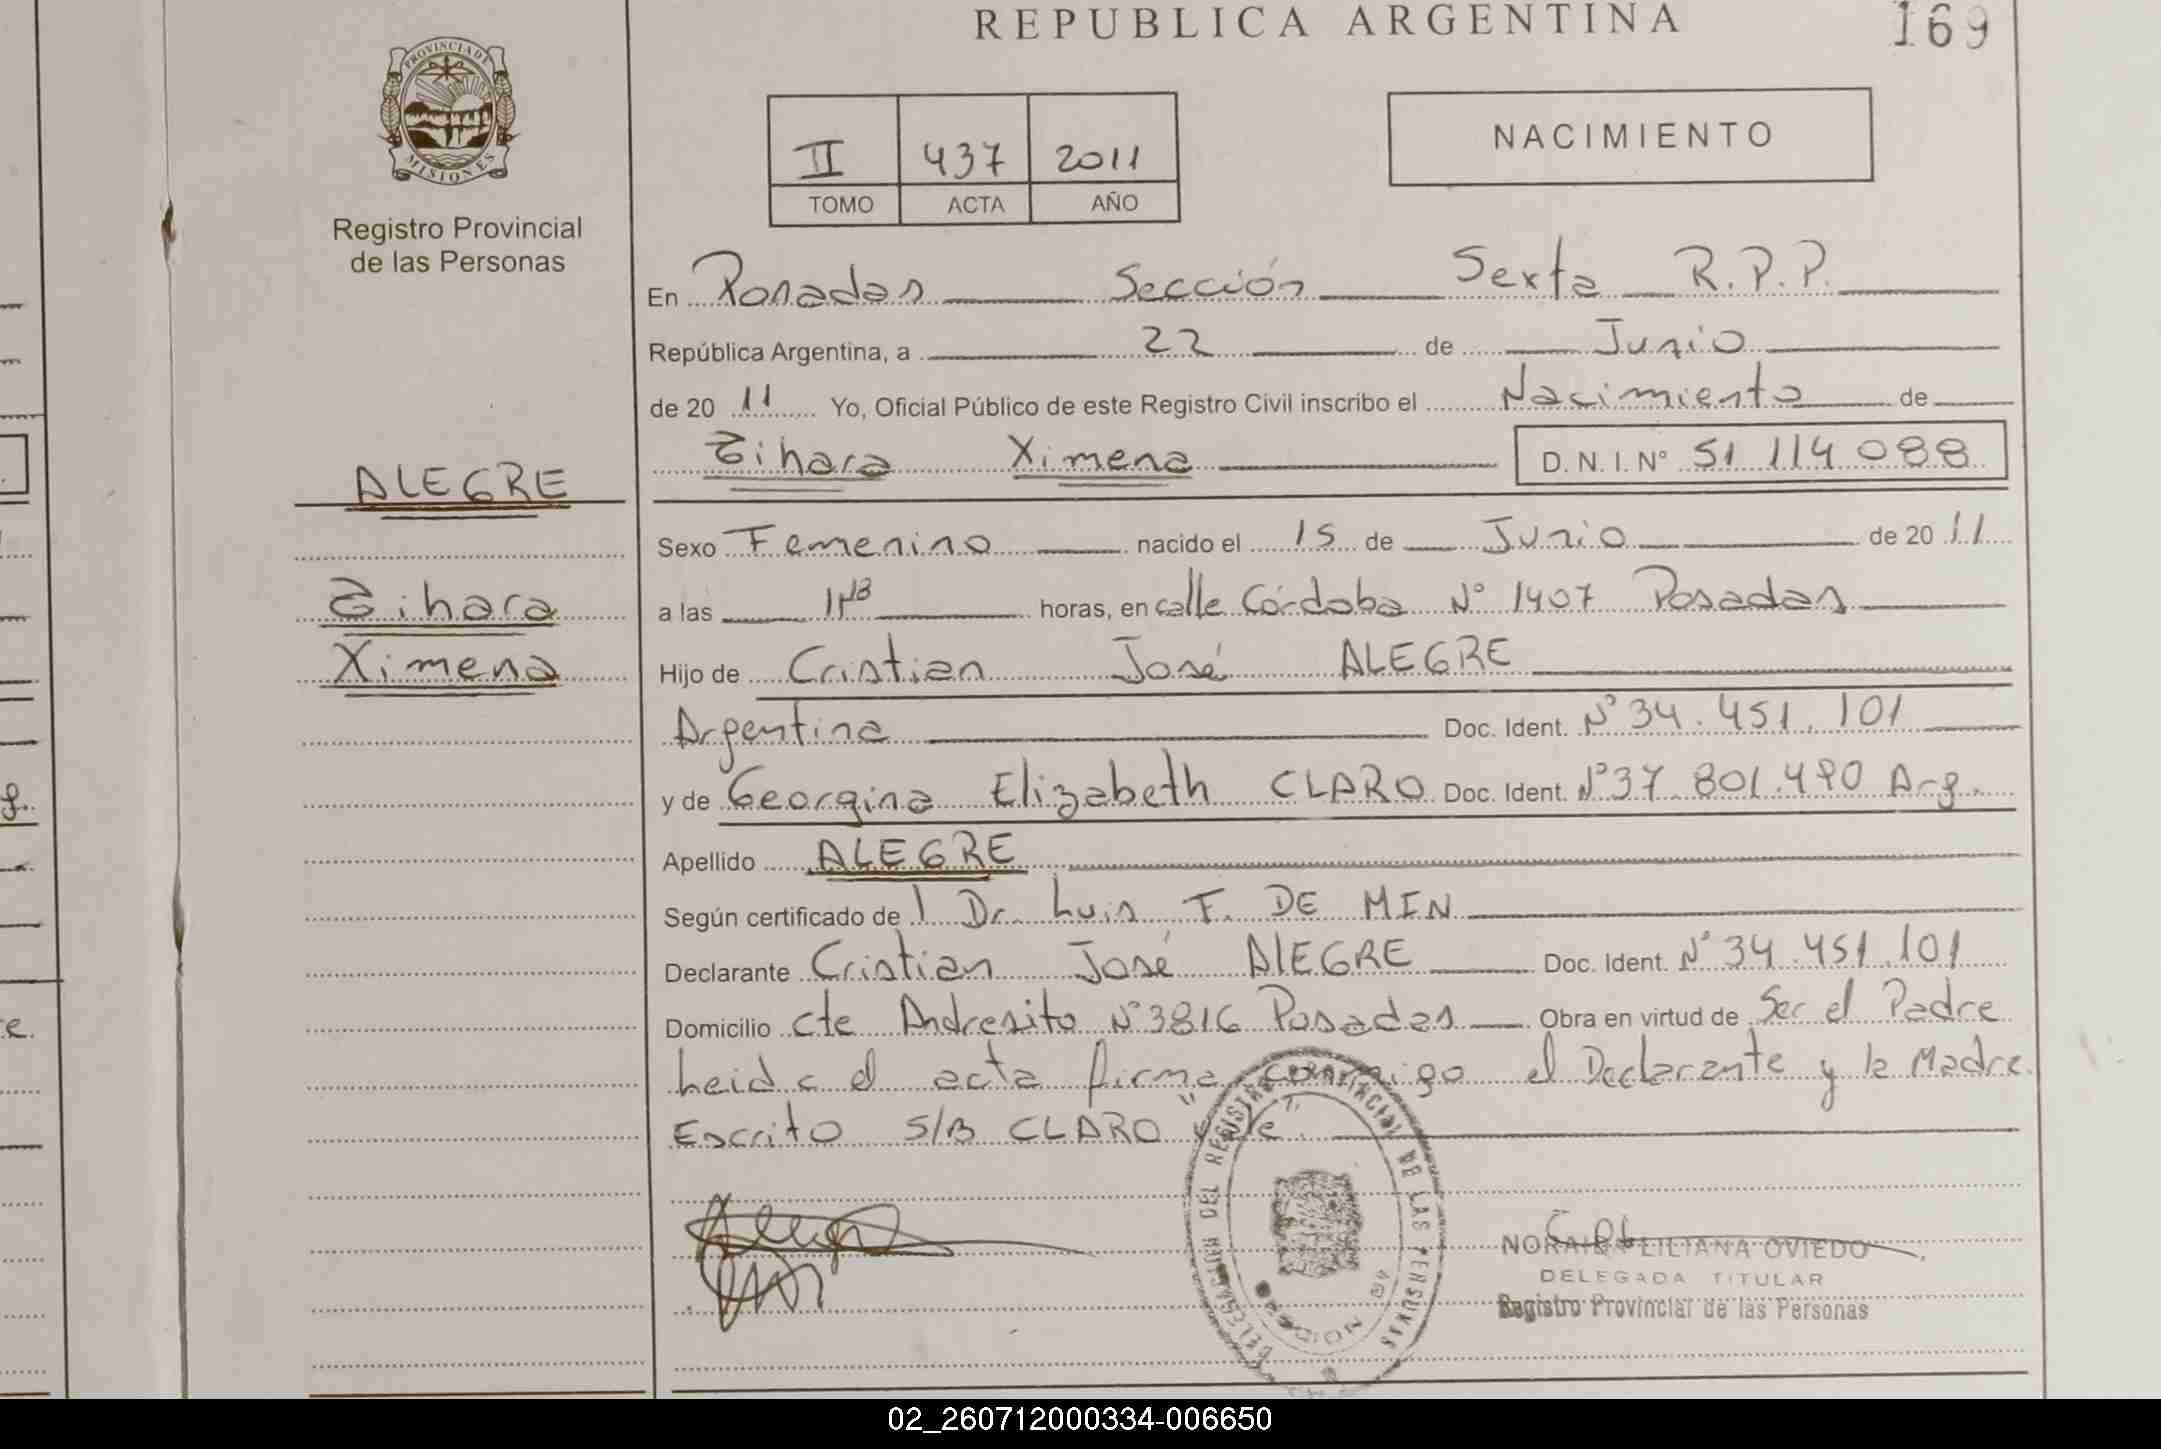 REPUBLICA ARGENTINA
169
PROVINCIA DE
MISIONES
Registro Provincial
de las Personas
II 437 2011
TOMO ACTA AÑO
NACIMIENTO
En Posadas Sección Sexta R.P.P.
República Argentina, a 22 de Junio
de 20 11 Yo, Oficial Público de este Registro Civil inscribo el Nacimiento de
Zihara Ximena D.N.I.Nº 51 114 088
ALEGRE
Zihara
Ximena
Sexo Femenino nacido el 15 de Junio de 20 11
a las horas, en calle Córdoba Nº 1407 Posadas
Hijo de Cristian José ALEGRE
Argentina Doc. Ident. Nº 34.451.101
y de Georgina Elizabeth CLARO Doc. Ident. Nº 37.801.490 Arg.
Apellido ALEGRE
Según certificado del Dr. Luis F. DE MIN
Declarante Cristian José ALEGRE Doc. Ident. Nº 34.451.101
Domicilio cte Andresito Nº 3816 Posadas Obra en virtud de Ser el Padre
Leida el acta firma conmigo el Declarante y la Madre.
Escrito S/B CLARO Vale.
DELEGACION DEL REGISTRO PROVINCIAL DE LAS PERSONAS
NORAIDA LILIANA OVIEDO
DELEGADA TITULAR
Registro Provincial de las Personas
02_260712000334-006650